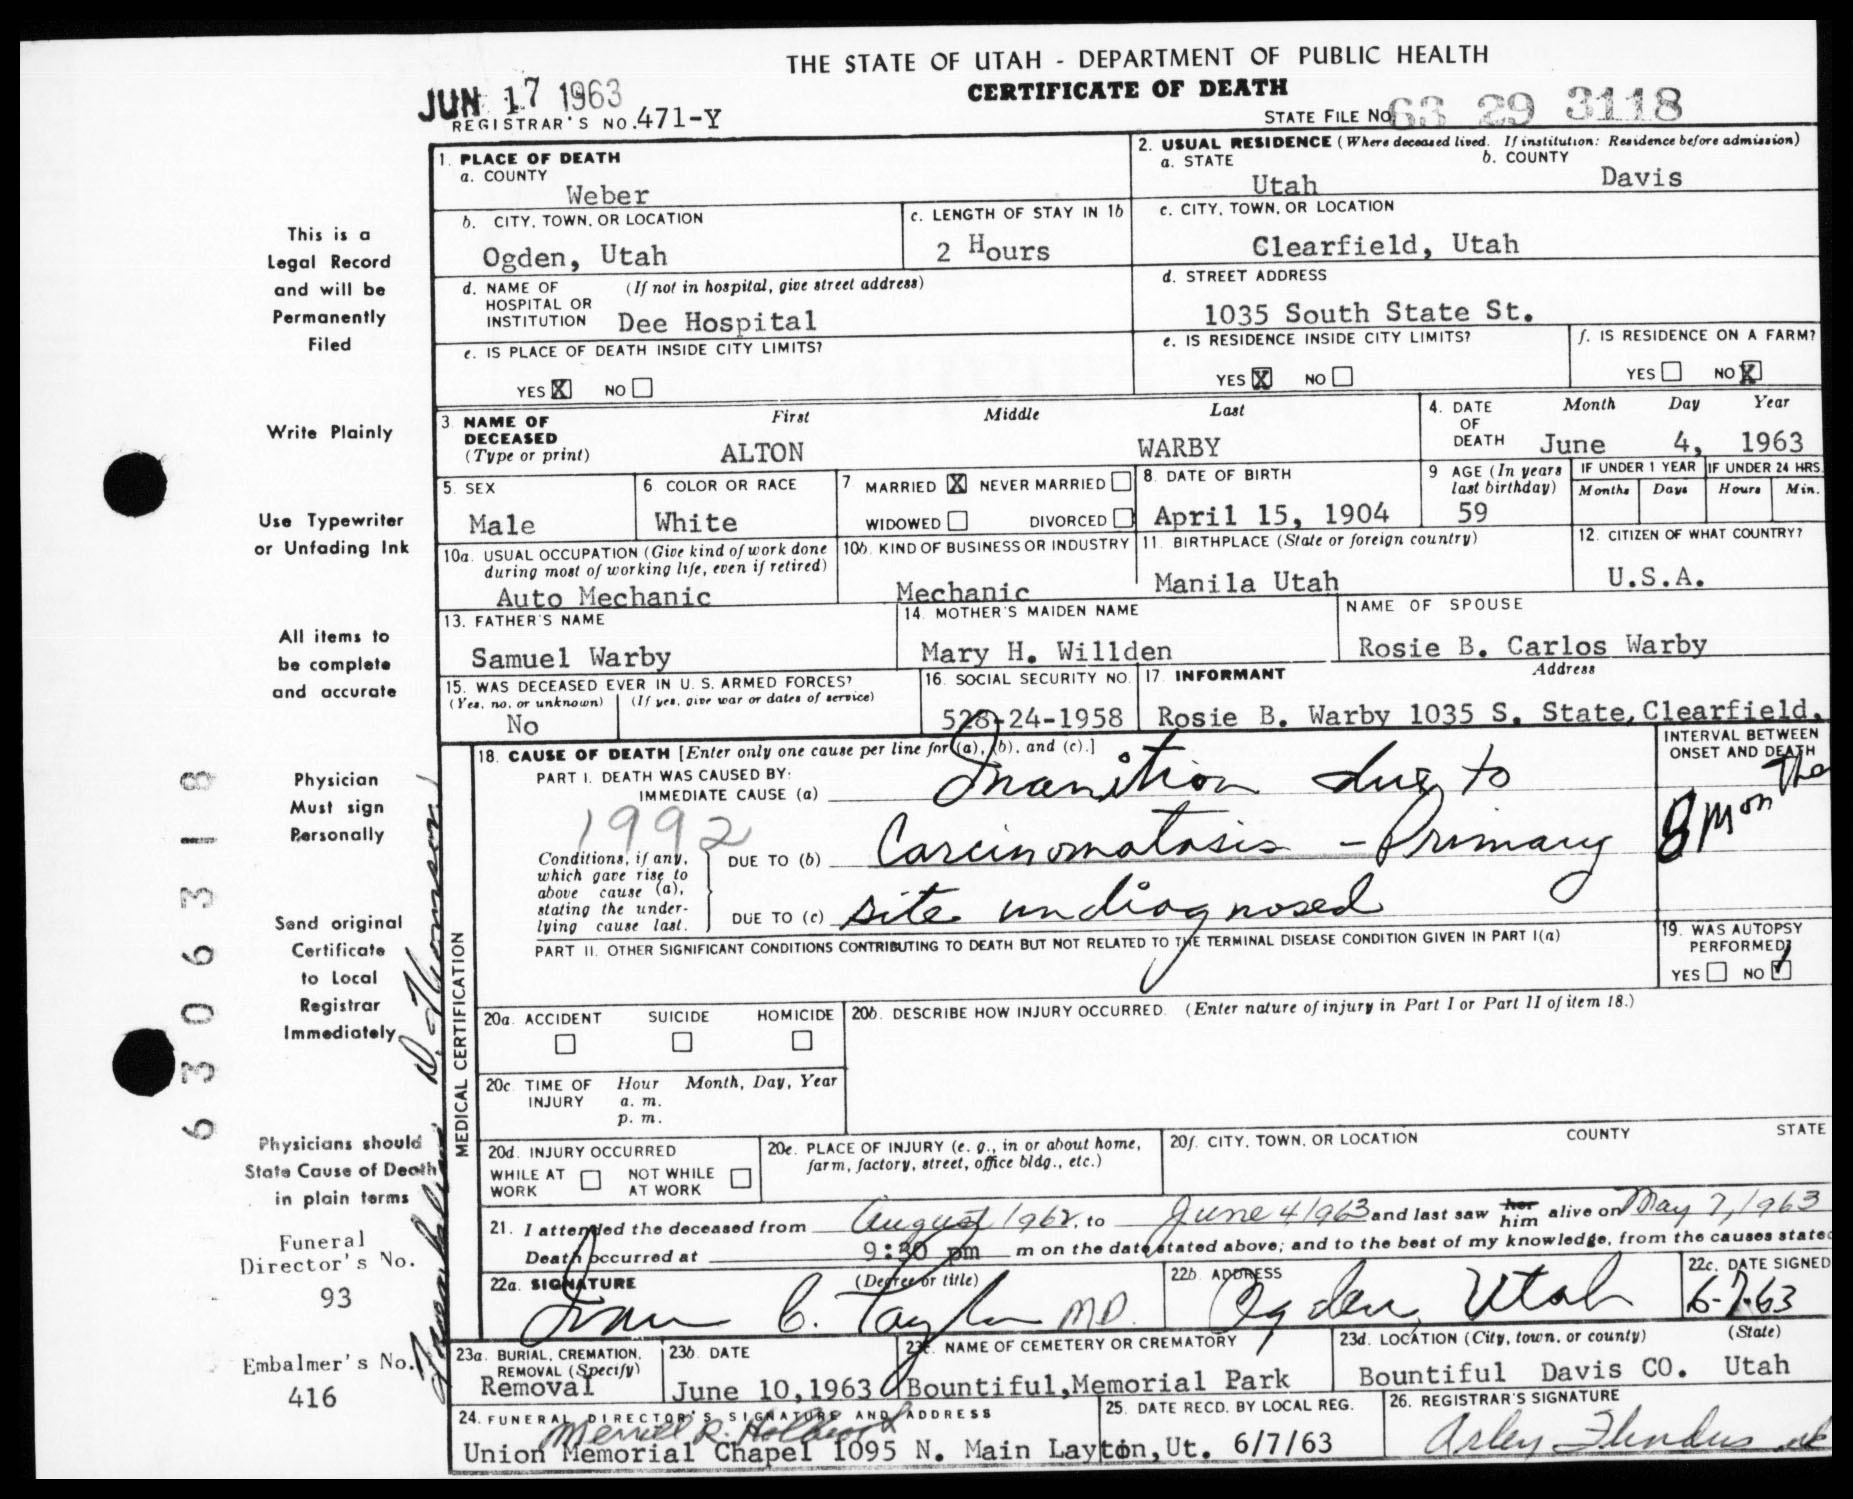 THE STATE OF UTAH - DEPARTMENT OF PUBLIC HEALTH
CERTIFICATE OF DEATH
JUN 17 1963
REGISTRAR'S NO. 471-Y
STATE FILE NO 63 29 3118
1. PLACE OF DEATH
a. COUNTY
Weber
2. USUAL RESIDENCE (Where deceased lived. If institution: Residence before admission)
a. STATE b. COUNTY
Utah Davis
b. CITY, TOWN, OR LOCATION
Ogden, Utah
c. LENGTH OF STAY IN 1b
2 Hours
c. CITY, TOWN, OR LOCATION
Clearfield, Utah
d. NAME OF HOSPITAL OR INSTITUTION (If not in hospital, give street address)
Dee Hospital
d. STREET ADDRESS
1035 South State St.
e. IS PLACE OF DEATH INSIDE CITY LIMITS?
YES X NO
e. IS RESIDENCE INSIDE CITY LIMITS?
YES X NO
f. IS RESIDENCE ON A FARM?
YES NO X
3. NAME OF DECEASED (Type or print)
First Middle Last
ALTON WARBY
4. DATE OF DEATH
Month Day Year
June 4, 1963
5. SEX
Male
6. COLOR OR RACE
White
7 MARRIED X NEVER MARRIED
WIDOWED DIVORCED
8. DATE OF BIRTH
April 15, 1904
9 AGE (In years last birthday)
59
IF UNDER 1 YEAR
Months Days
IF UNDER 24 HRS.
Hours Min.
10a. USUAL OCCUPATION (Give kind of work done during most of working life, even if retired)
Auto Mechanic
10b. KIND OF BUSINESS OR INDUSTRY
Mechanic
11. BIRTHPLACE (State or foreign country)
Manila Utah
12. CITIZEN OF WHAT COUNTRY?
U.S.A.
13. FATHER'S NAME
Samuel Warby
14. MOTHER'S MAIDEN NAME
Mary H. Willden
NAME OF SPOUSE
Rosie B. Carlos Warby
15. WAS DECEASED EVER IN U. S. ARMED FORCES?
(Yes, no, or unknown) (If yes, give war or dates of service)
No
16. SOCIAL SECURITY NO.
528-24-1958
17. INFORMANT Address
Rosie B. Warby 1035 S. State, Clearfield,
18. CAUSE OF DEATH [Enter only one cause per line for (a), (b), and (c).]
PART I. DEATH WAS CAUSED BY:
IMMEDIATE CAUSE (a) Inanition due to
1992
Conditions, if any, which gave rise to above cause (a), stating the underlying cause last.
DUE TO (b) Carcinomatosis - Primary
DUE TO (c) site undiagnosed
INTERVAL BETWEEN ONSET AND DEATH
8 months
PART II. OTHER SIGNIFICANT CONDITIONS CONTRIBUTING TO DEATH BUT NOT RELATED TO THE TERMINAL DISEASE CONDITION GIVEN IN PART I(a)
19. WAS AUTOPSY PERFORMED?
YES NO ✓
MEDICAL CERTIFICATION
20a. ACCIDENT SUICIDE HOMICIDE
20b. DESCRIBE HOW INJURY OCCURRED. (Enter nature of injury in Part I or Part II of item 18.)
20c. TIME OF INJURY Hour Month, Day, Year
a. m.
p. m.
20d. INJURY OCCURRED
WHILE AT WORK NOT WHILE AT WORK
20e. PLACE OF INJURY (e. g., in or about home, farm, factory, street, office bldg., etc.)
20f. CITY, TOWN, OR LOCATION COUNTY STATE
21. I attended the deceased from August 1962, to June 4 1963 and last saw her him alive on May 7, 1963
Death occurred at 9:30 pm m on the date stated above; and to the best of my knowledge, from the causes stated
22a. SIGNATURE (Degree or title)
Ivan C. Taylor MD.
22b. ADDRESS
Ogden, Utah
22c. DATE SIGNED
6-7-63
23a. BURIAL, CREMATION, REMOVAL (Specify)
Removal
23b. DATE
June 10, 1963
23c. NAME OF CEMETERY OR CREMATORY
Bountiful, Memorial Park
23d. LOCATION (City, town, or county) (State)
Bountiful Davis CO. Utah
24. FUNERAL DIRECTOR'S SIGNATURE AND ADDRESS
Merrill R. Holbrook
Union Memorial Chapel 1095 N. Main Layton, Ut.
25. DATE RECD. BY LOCAL REG.
6/7/63
26. REGISTRAR'S SIGNATURE
Arley Flinders
This is a
Legal Record
and will be
Permanently
Filed
Write Plainly
Use Typewriter
or Unfading Ink
All items to
be complete
and accurate
Physician
Must sign
Personally
Send original
Certificate
to Local
Registrar
Immediately
Physicians should
State Cause of Death
in plain terms
Funeral
Director's No.
93
Embalmer's No.
416
63063118
D. Thomson